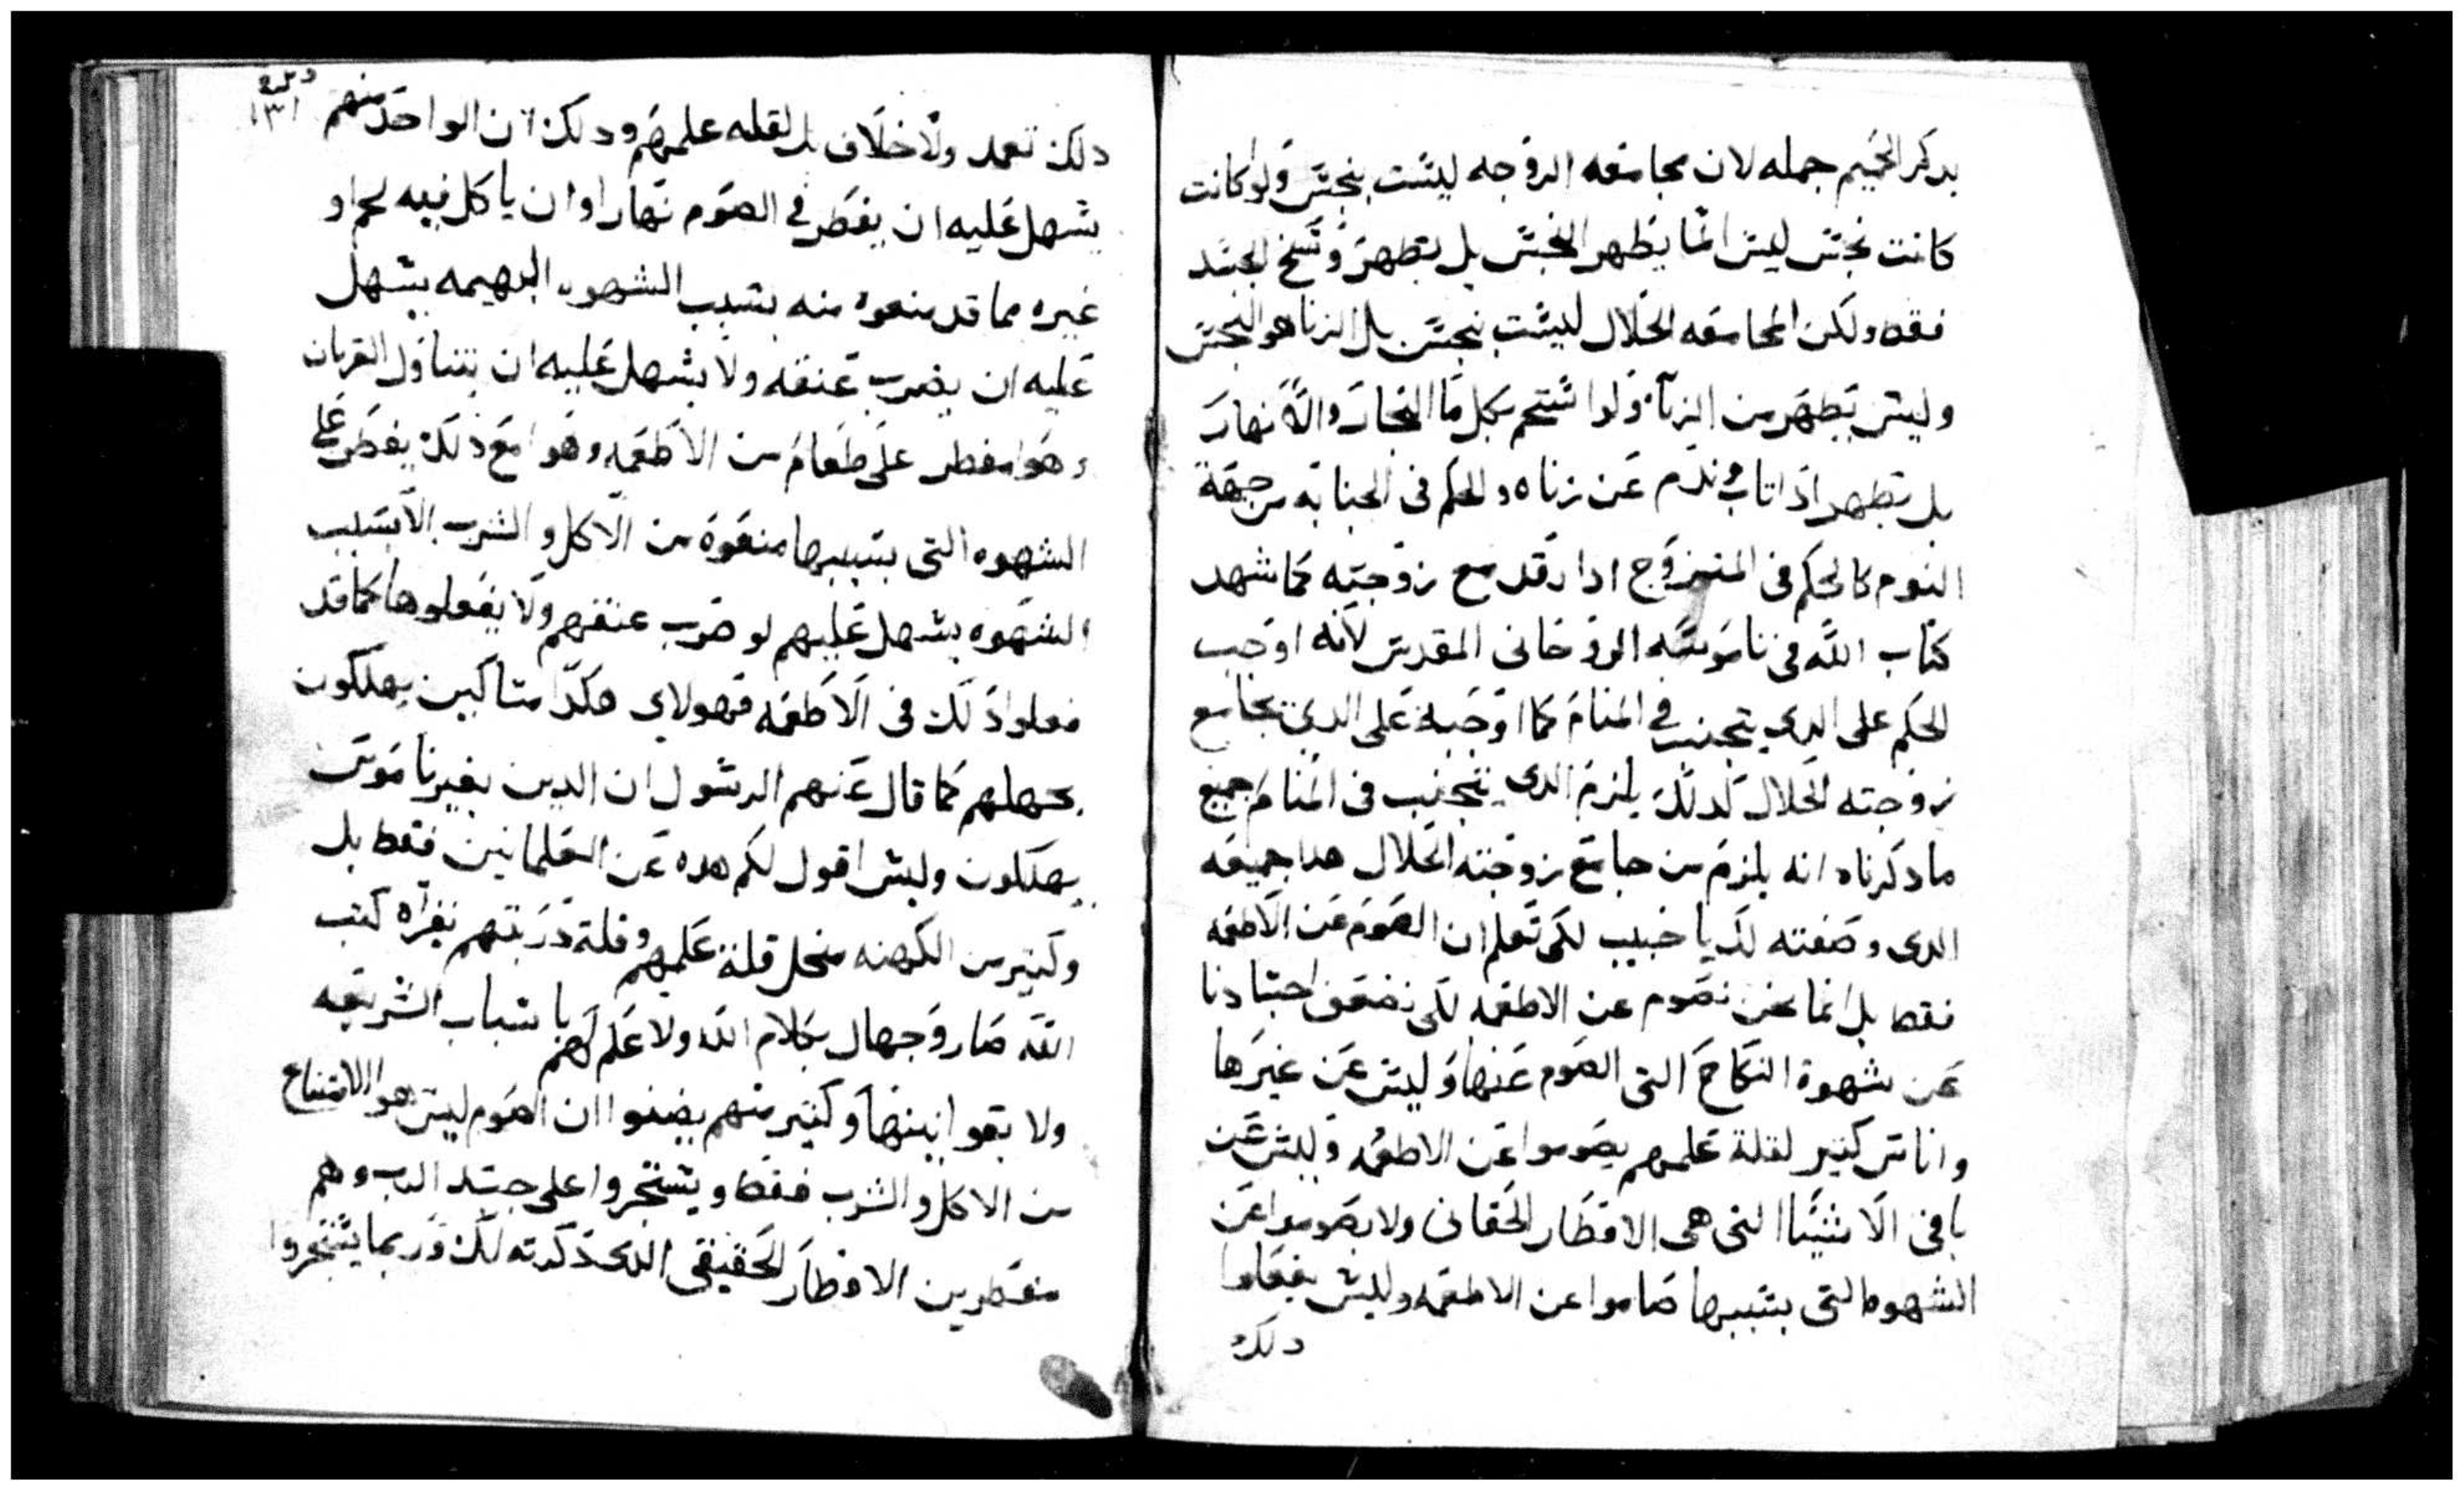 بدكر الحميم جمله لان مجامعه الزوجه ليست بنجس ولو كانت
كانت نجس ليس الما يطهر النجس بل يطهر وسخ الجسد
فقط ولكن المجامعه الحلال ليست بنجس بل الزنا هو النجس
وليس يطهر من الزنا ولو استحم بكل ما البحار والانهار
بل يطهر اذا تاب وندم عن زناه والحكم في الجنابه من جهة
النوم كالحكم في المتزوج ادا رقد مع زوجته كما شهد
كتاب الله في ناموسه الروحاني المقدس لانه اوجب
الحكم على الدي يتجنب في المنام كما اوجبه على الدي يجامع
زوجته الحلال كدلك يلزم الدي يتجنب في المنام جميع
ما دكرناه انه يلزم من جامع زوجته الحلال هدا جميعه
الدي وصفته لك يا حبيب لكي تعلم ان الصوم عن الاطعمه
فقط بل انما نحن نصوم عن الاطعمه لكي نضعف اجسادنا
عن شهوة النكاح التي الصوم عنها وليس عن غيرها
واناس كثير لقلة علمهم يصوموا عن الاطعمه وليس عن
باقي الاشيا التي هي الافطار الحقاني ولا يصوموا عن
الشهوه التي بسببها صاموا عن الاطعمه وليس يفعلوا
دلك
١٣١
دلك تعمد ولا خلاف بل لقله علمهم ودلك ان الواحد منهم
يسهل عليه ان يفطر في الصوم نهارا وان ياكل فيه لحم او
غيره مما قد منعوه منه بسبب الشهوه البهيمه يسهل
عليه ان يضرب عنقه ولا يسهل عليه ان يتناول القربان
وهوا مفطر على طعام من الاطعمه وهوا مع ذلك يفطر على
الشهوه التي بسببها منعوه من الاكل والشرب الا بسبب
الشهوه يسهل عليهم لو ضرب عنقهم ولا يفعلوها كما قد
فعلوا ذلك في الاطعمه فهولاي هكدا مساكين يهلكون
بجهلهم كما قال عنهم الرسول ان الدين بغير ناموس
يهلكون وليس اقول لكم هده عن العلمانيين فقط بل
وكثير من الكهنه منجل قلة علمهم وقلة دربتهم بقراه كتب
الله صاروا جهال بكلام الله ولا علم لهم باسباب الشريعه
ولا يقوانينها وكثير منهم يضنوا ان الصوم ليس هوا الامتناع
من الاكل والشرب فقط ويستجروا على جسد الرب وهم
مفطرين الافطار الحقيقي الدي دكرته لك وربما يستجروا